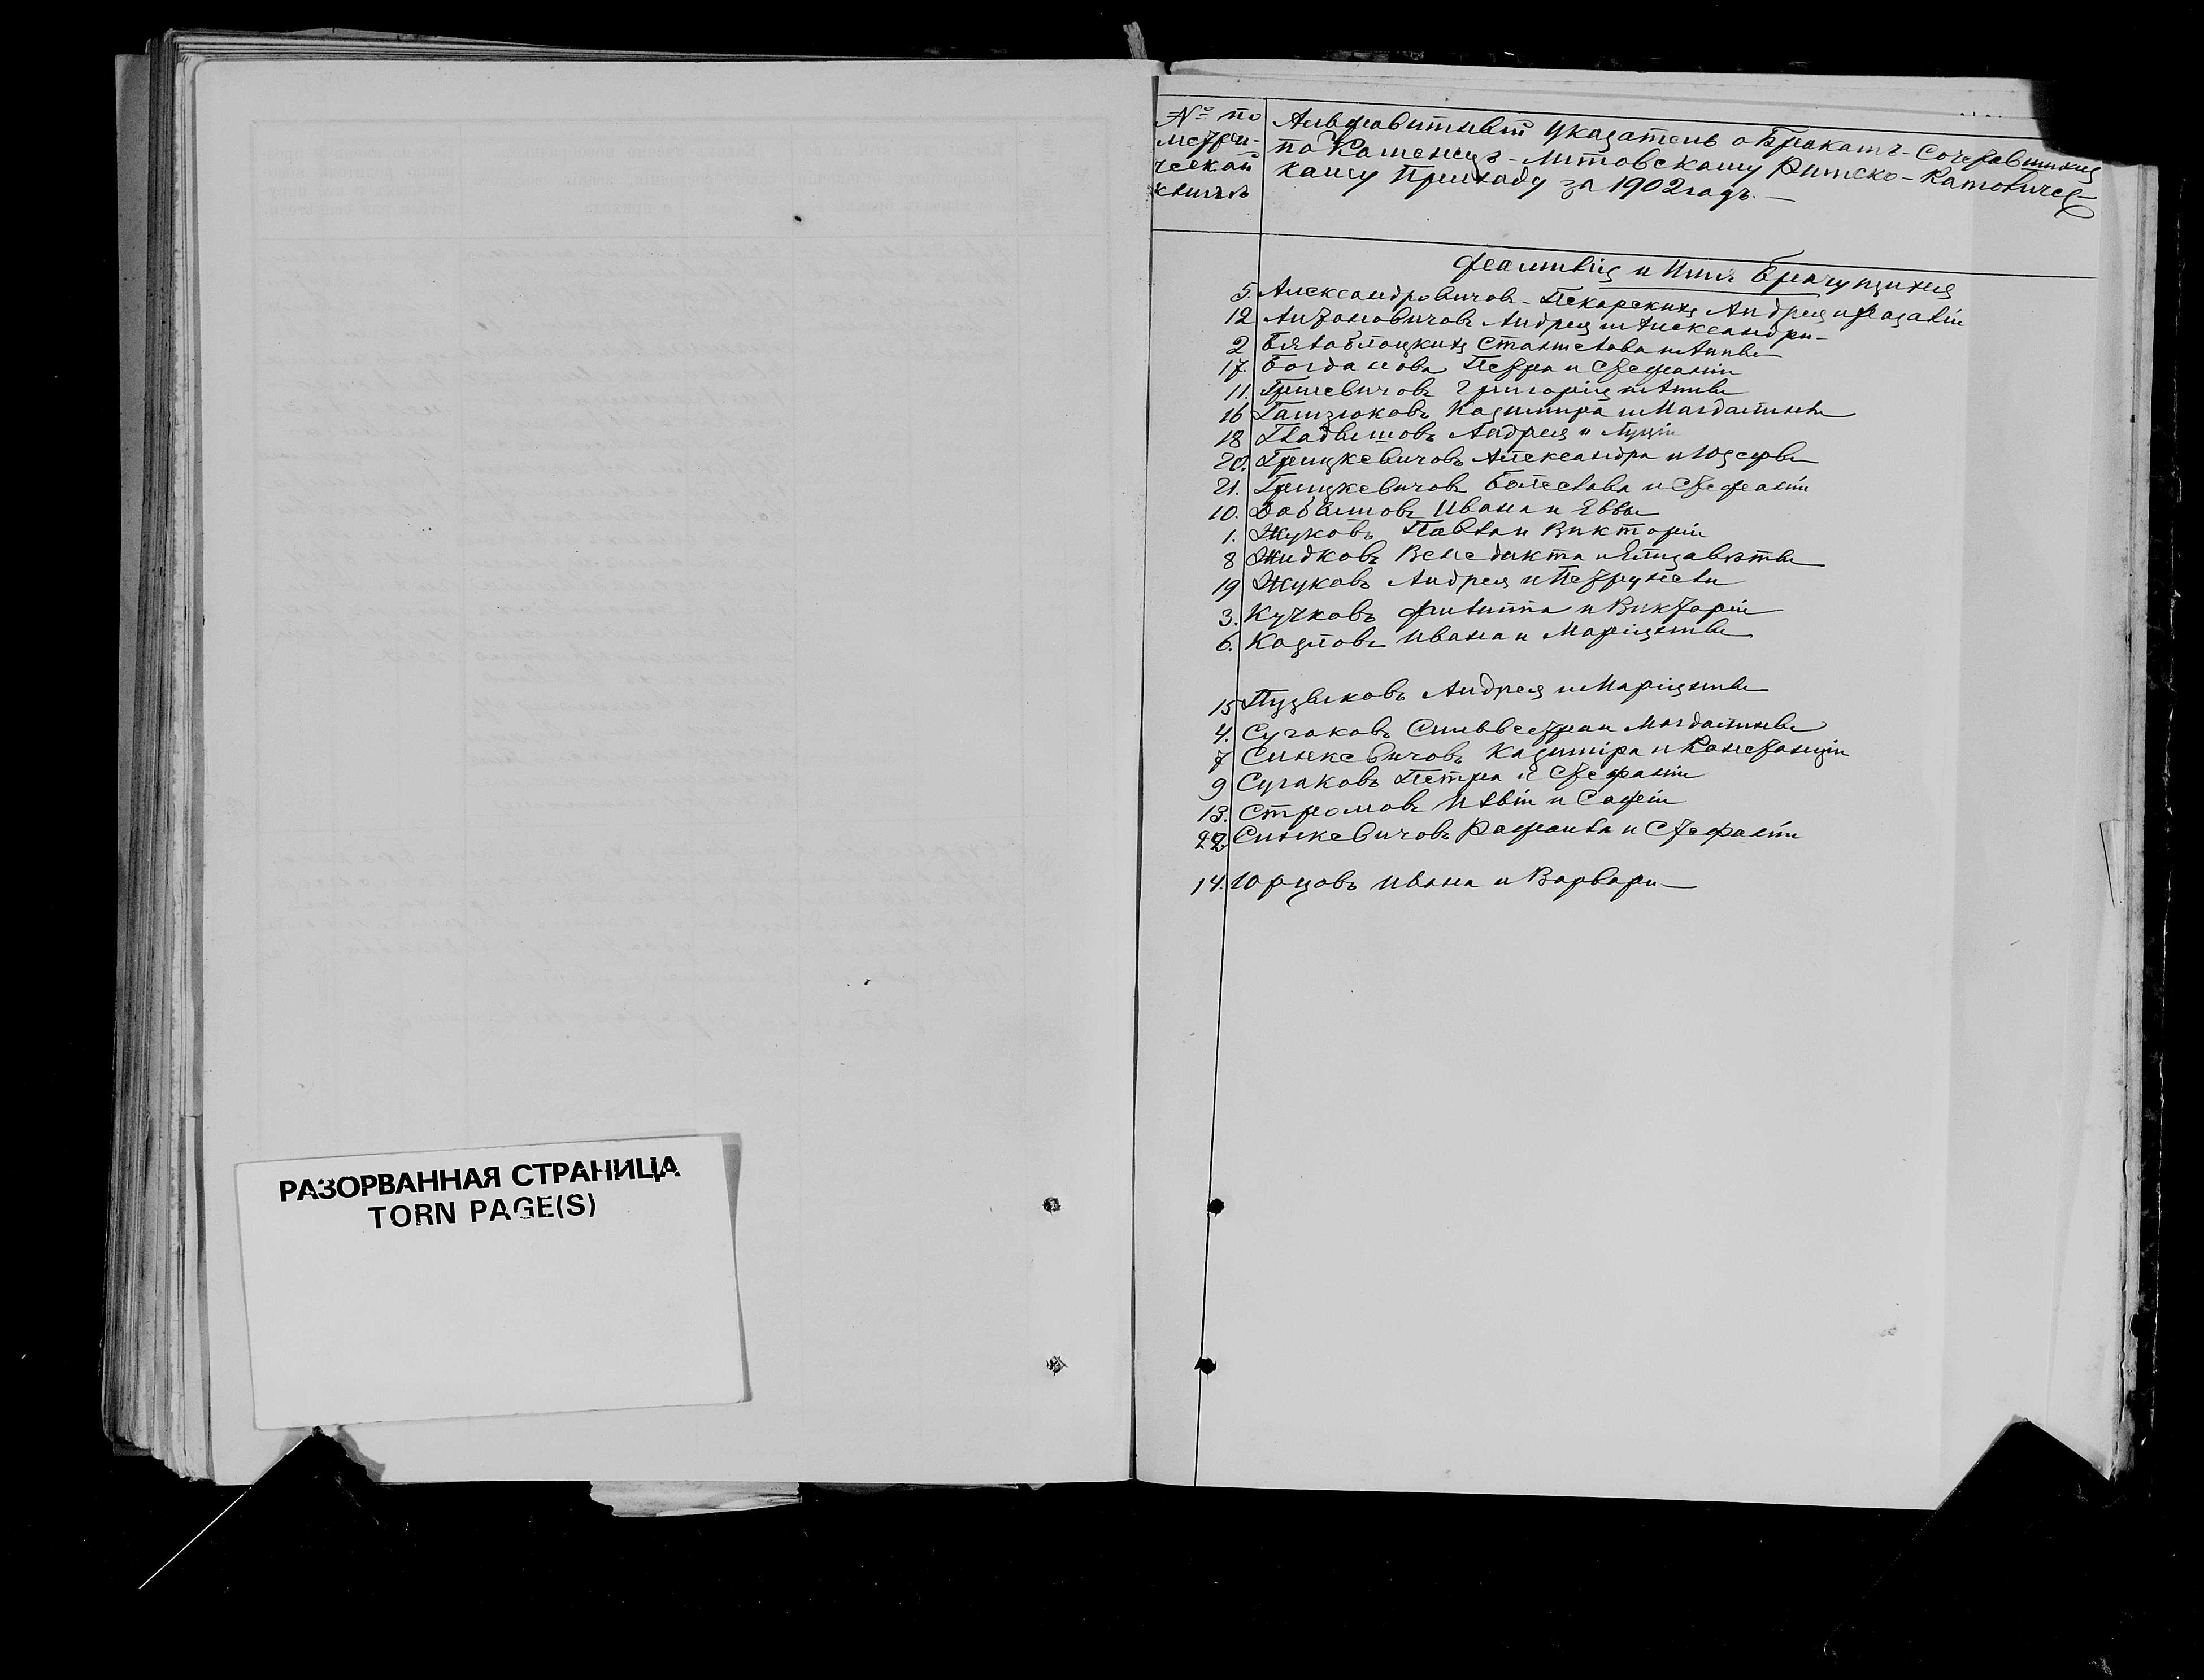 № по
метри-
ческой
книгѣ
Алфавитный указатель о Бракахъ-Сочетавшихся
по Каменецъ-Литовскому Римско-Католичес-
кому Приходу за 1902 годъ.
Фамилія и Имя Брачущихся
5. Александровичовъ-Пекарскихъ Андрея и Розаліи
12 Антоновичовъ Андрея и Александры
2 Бялаблоцкихъ Станислава и Анны
17. Богданова Петра и Стефаніи
11. Гриневичовъ Григорія и Анны
16 Казимира и Магдалины
18 Гладышовъ Андрея и Луціи
20. Грицкевичовъ Александра и Юзефы
21. Грицкевичовъ Болеслава и Стефаніи
10. Ивана и Еввы
1. Жуковъ Павла и Викторіи
8 Жидковъ Венедикта и Елизаветы
19 Жуковъ Андрея и Петрунели
3. Кучковъ Филиппа и Викторіи
6. Козловъ Ивана и Маріянны
15 Пузыковъ Андрея и Маріянны
4. Сугаковъ Сильвестра и Магдалины
7 Синкевичовъ Казиміра и Констанціи
9 Сугаковъ Петра и Стефаніи
13. Стромовъ Иліи и Софіи
22. Синкевичовъ Рафаила и Стефаніи
14. Юрцовъ Ивана и Варвары
РАЗОРВАННАЯ СТРАНИЦА
TORN PAGE(S)